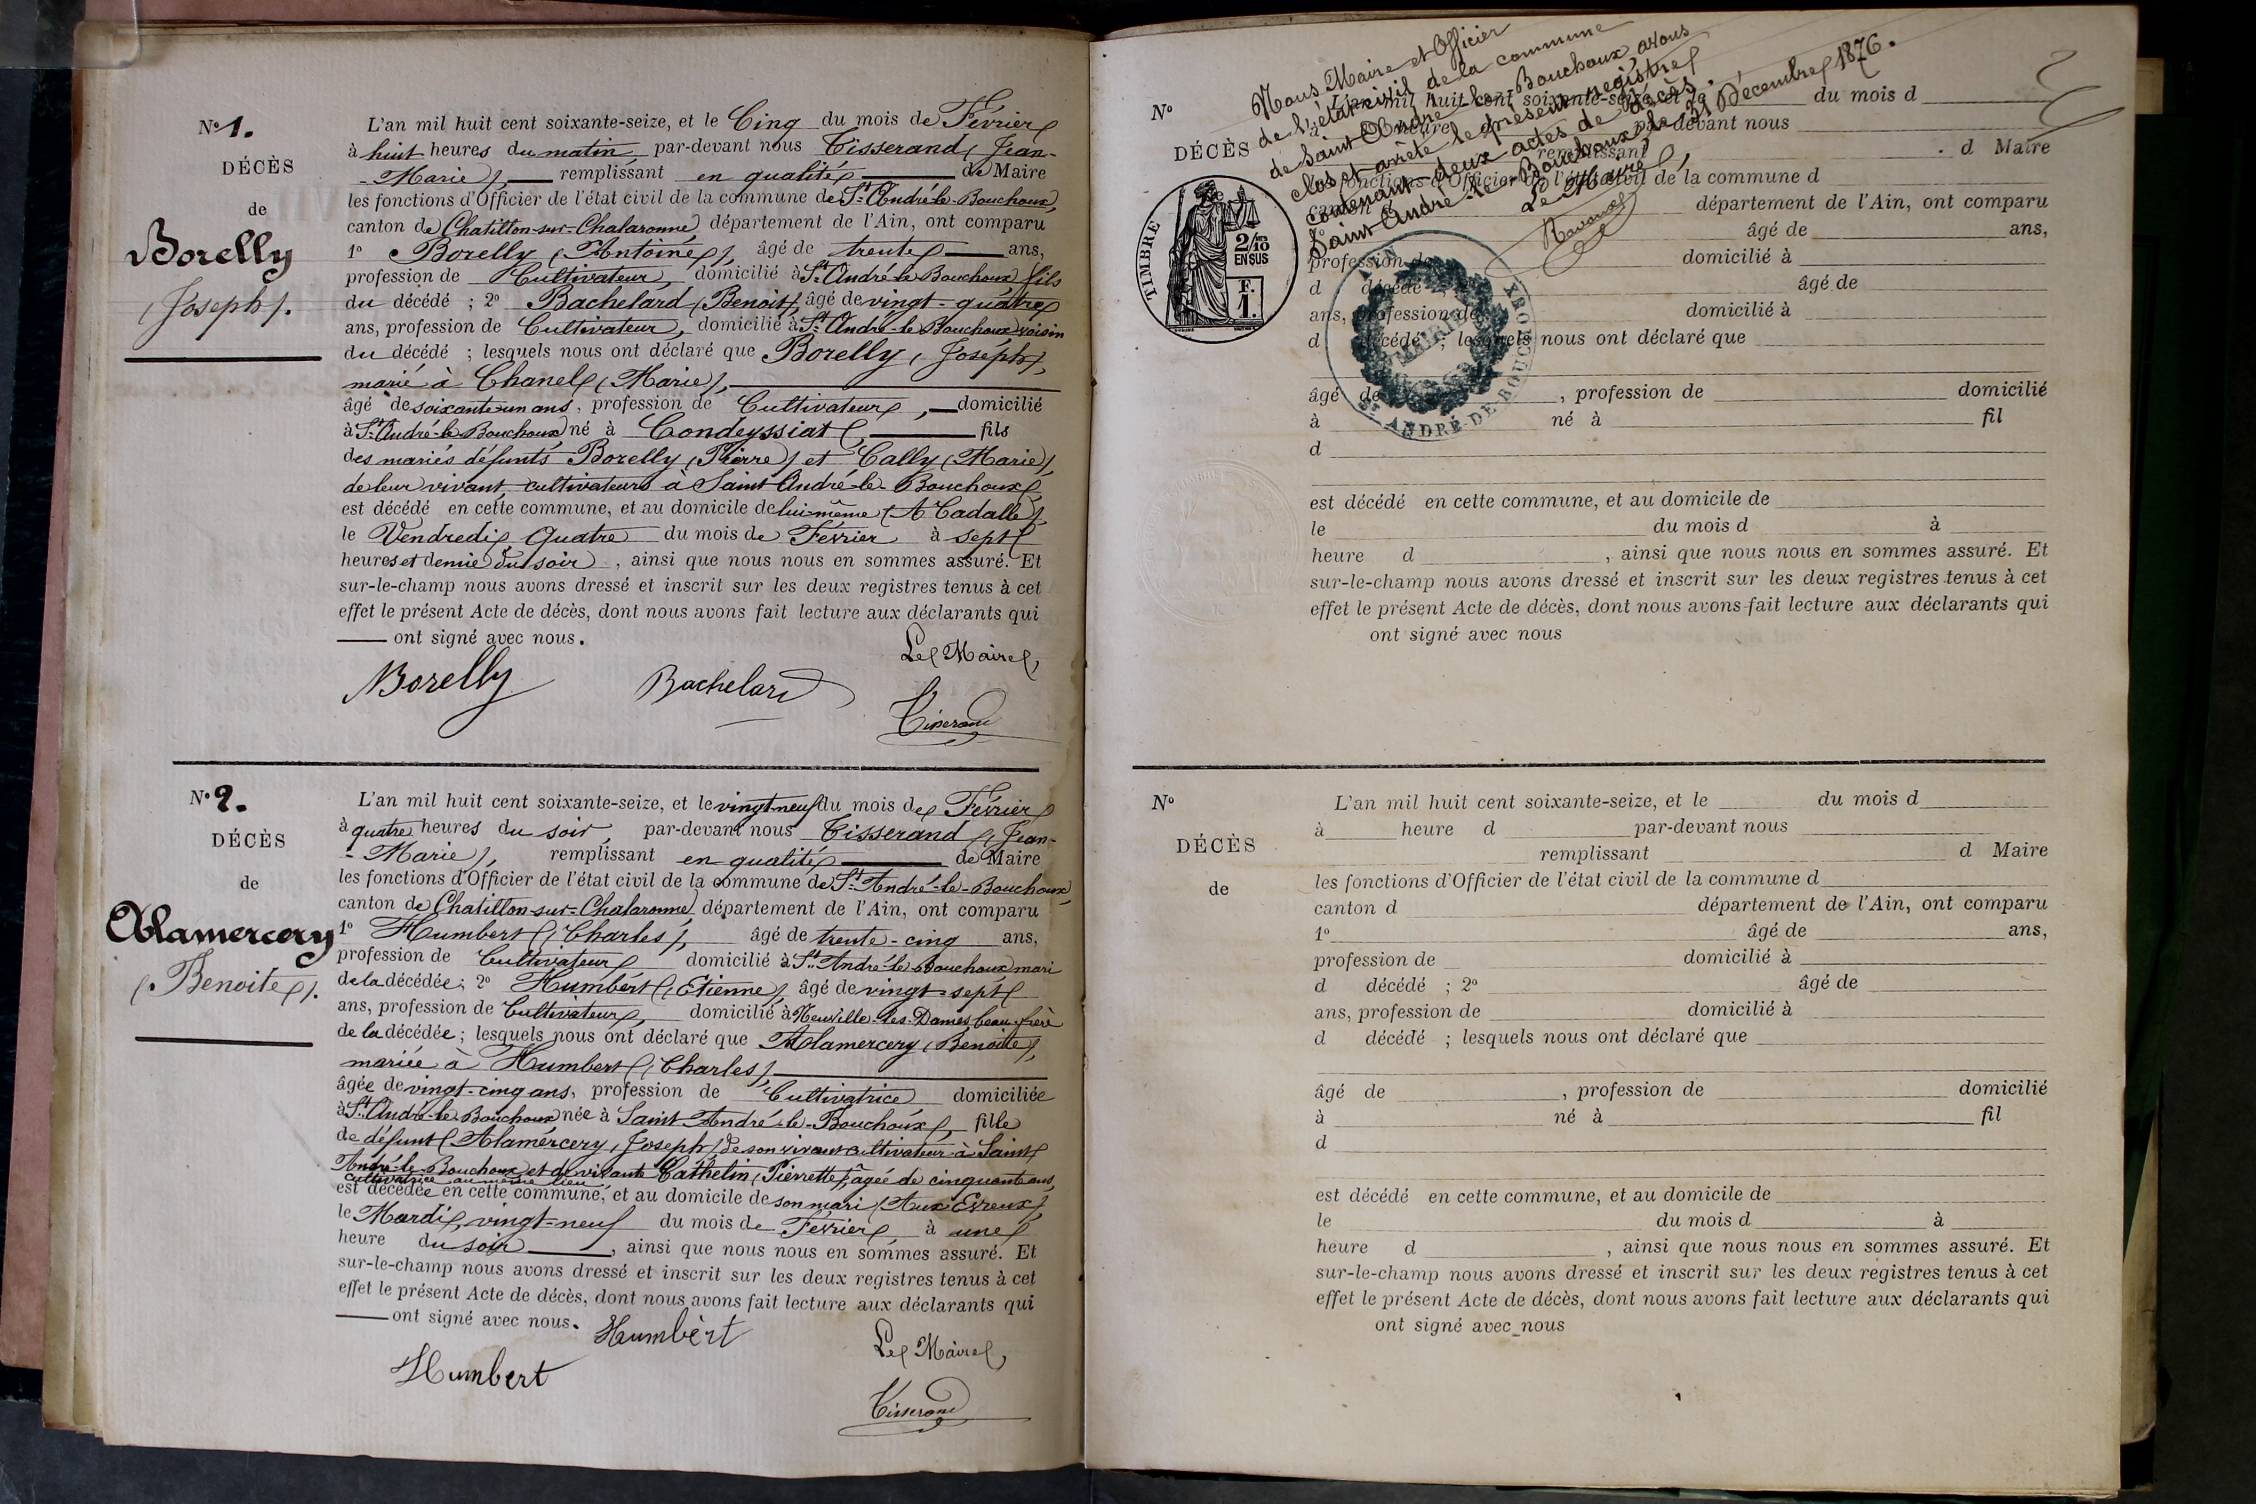 N° 1.
DÉCÈS
de
Borelly
(Joseph).
L'an mil huit cent soixante-seize, et le Cinq du mois de Février
à huit heures du matin par-devant nous Tisserand (Jean-
-Marie), remplissant en qualité de Maire
les fonctions d'Officier de l'état civil de la commune de St André-le-Bouchoux,
canton de Chatillon-sur-Chalaronne, département de l'Ain, ont comparu
1° Borelly (Antoine), âgé de trente ans,
profession de Cultivateur, domicilié à St André-le-Bouchoux fils
du décédé ; 2° Bachelard (Benoit), âgé de vingt-quatre
ans, profession de Cultivateur, domicilié à St André-le-Bouchoux voisin
du décédé ; lesquels nous ont déclaré que Borelly (Joseph),
marié à Chanel (Marie),
âgé de soixante un ans, profession de Cultivateur, domicilié
à St André-le-Bouchoux né à Condeyssiat, fils
des mariés défunts Borelly (Pierre) et Cally (Marie),
de leur vivant, cultivateurs à Saint André-le-Bouchoux,
est décédé en cette commune, et au domicile de lui-même (A Cadalle),
le Vendredi Quatre du mois de Février à sept
heures et demie du soir, ainsi que nous nous en sommes assuré. Et
sur-le-champ nous avons dressé et inscrit sur les deux registres tenus à cet
effet le présent Acte de décès, dont nous avons fait lecture aux déclarants qui
ont signé avec nous.
Le Maire,
Borelly Bachelard
Tisserand
N° 2.
DÉCÈS
de
Alamercery
(Benoite).
L'an mil huit cent soixante-seize, et le vingt-neuf du mois de Février
à quatre heures du soir, par-devant nous Tisserand (Jean-
-Marie), remplissant en qualité de Maire
les fonctions d'Officier de l'état civil de la commune de St André-le-Bouchoux,
canton de Chatillon-sur-Chalaronne, département de l'Ain, ont comparu
1° Humbert (Charles), âgé de trente-cinq ans,
profession de Cultivateur domicilié à St André-le-Bouchoux mari
de la décédée ; 2° Humbert (Etienne), âgé de vingt-sept
ans, profession de Cultivateur, domicilié à Neuville-les-Dames beau-frère
de la décédée ; lesquels nous ont déclaré que Alamercery (Benoite),
mariée à Humbert (Charles),
âgée de vingt-cinq ans, profession de Cultivatrice domiciliée
à St André-le-Bouchoux née à Saint-André-le-Bouchoux, fille
de défunt Alamercery (Joseph) de son vivant cultivateur à Saint
André-le-Bouchoux et de vivante Cathelin (Pierrette) âgée de cinquante ans,
cultivatrice au même lieu,
est décédée en cette commune, et au domicile de son mari (Aux Evreux),
le Mardi, vingt-neuf du mois de Février, à une
heure du soir, ainsi que nous nous en sommes assuré. Et
sur-le-champ nous avons dressé et inscrit sur les deux registres tenus à cet
effet le présent Acte de décès, dont nous avons fait lecture aux déclarants qui
ont signé avec nous.
Humbert
Le Maire,
Humbert
Tisserand
Nous Maire et Officier
de l'état civil de la commune
de Saint André-le-Bouchoux, avons
clos et arrêté le présent registre
contenant deux actes de décès.
Saint André-le-Bouchoux, le 31 Décembre 1876.
Le Maire,
N°
DÉCÈS
TIMBRE
2/10
EN SUS
F.
1.
AIN
MAIRIE
ST ANDRÉ-DE-BOUCHOUX
L'an mil huit cent soixante-seize, et le du mois d
à heure d par-devant nous
remplissant d Maire
les fonctions d'Officier de l'état civil de la commune d
canton d département de l'Ain, ont comparu
1° âgé de ans,
profession de domicilié à
d décédé ; âgé de
ans, profession de domicilié à
d décédé ; lesquels nous ont déclaré que
âgé de , profession de domicilié
à né à fil
d
est décédé en cette commune, et au domicile de
le du mois d à
heure d , ainsi que nous nous en sommes assuré. Et
sur-le-champ nous avons dressé et inscrit sur les deux registres tenus à cet
effet le présent Acte de décès, dont nous avons fait lecture aux déclarants qui
ont signé avec nous
N°
DÉCÈS
de
L'an mil huit cent soixante-seize, et le du mois d
à heure d par-devant nous
remplissant d Maire
les fonctions d'Officier de l'état civil de la commune d
canton d département de l'Ain, ont comparu
1° âgé de ans,
profession de domicilié à
d décédé ; 2° âgé de
ans, profession de domicilié à
d décédé ; lesquels nous ont déclaré que
âgé de , profession de domicilié
à né à fil
d
est décédé en cette commune, et au domicile de
le du mois d à
heure d , ainsi que nous nous en sommes assuré. Et
sur-le-champ nous avons dressé et inscrit sur les deux registres tenus à cet
effet le présent Acte de décès, dont nous avons fait lecture aux déclarants qui
ont signé avec nous